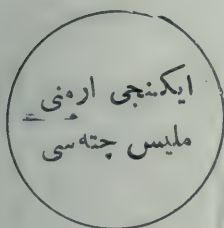 ایکنجی ارمنی
ملیس چته‌سی